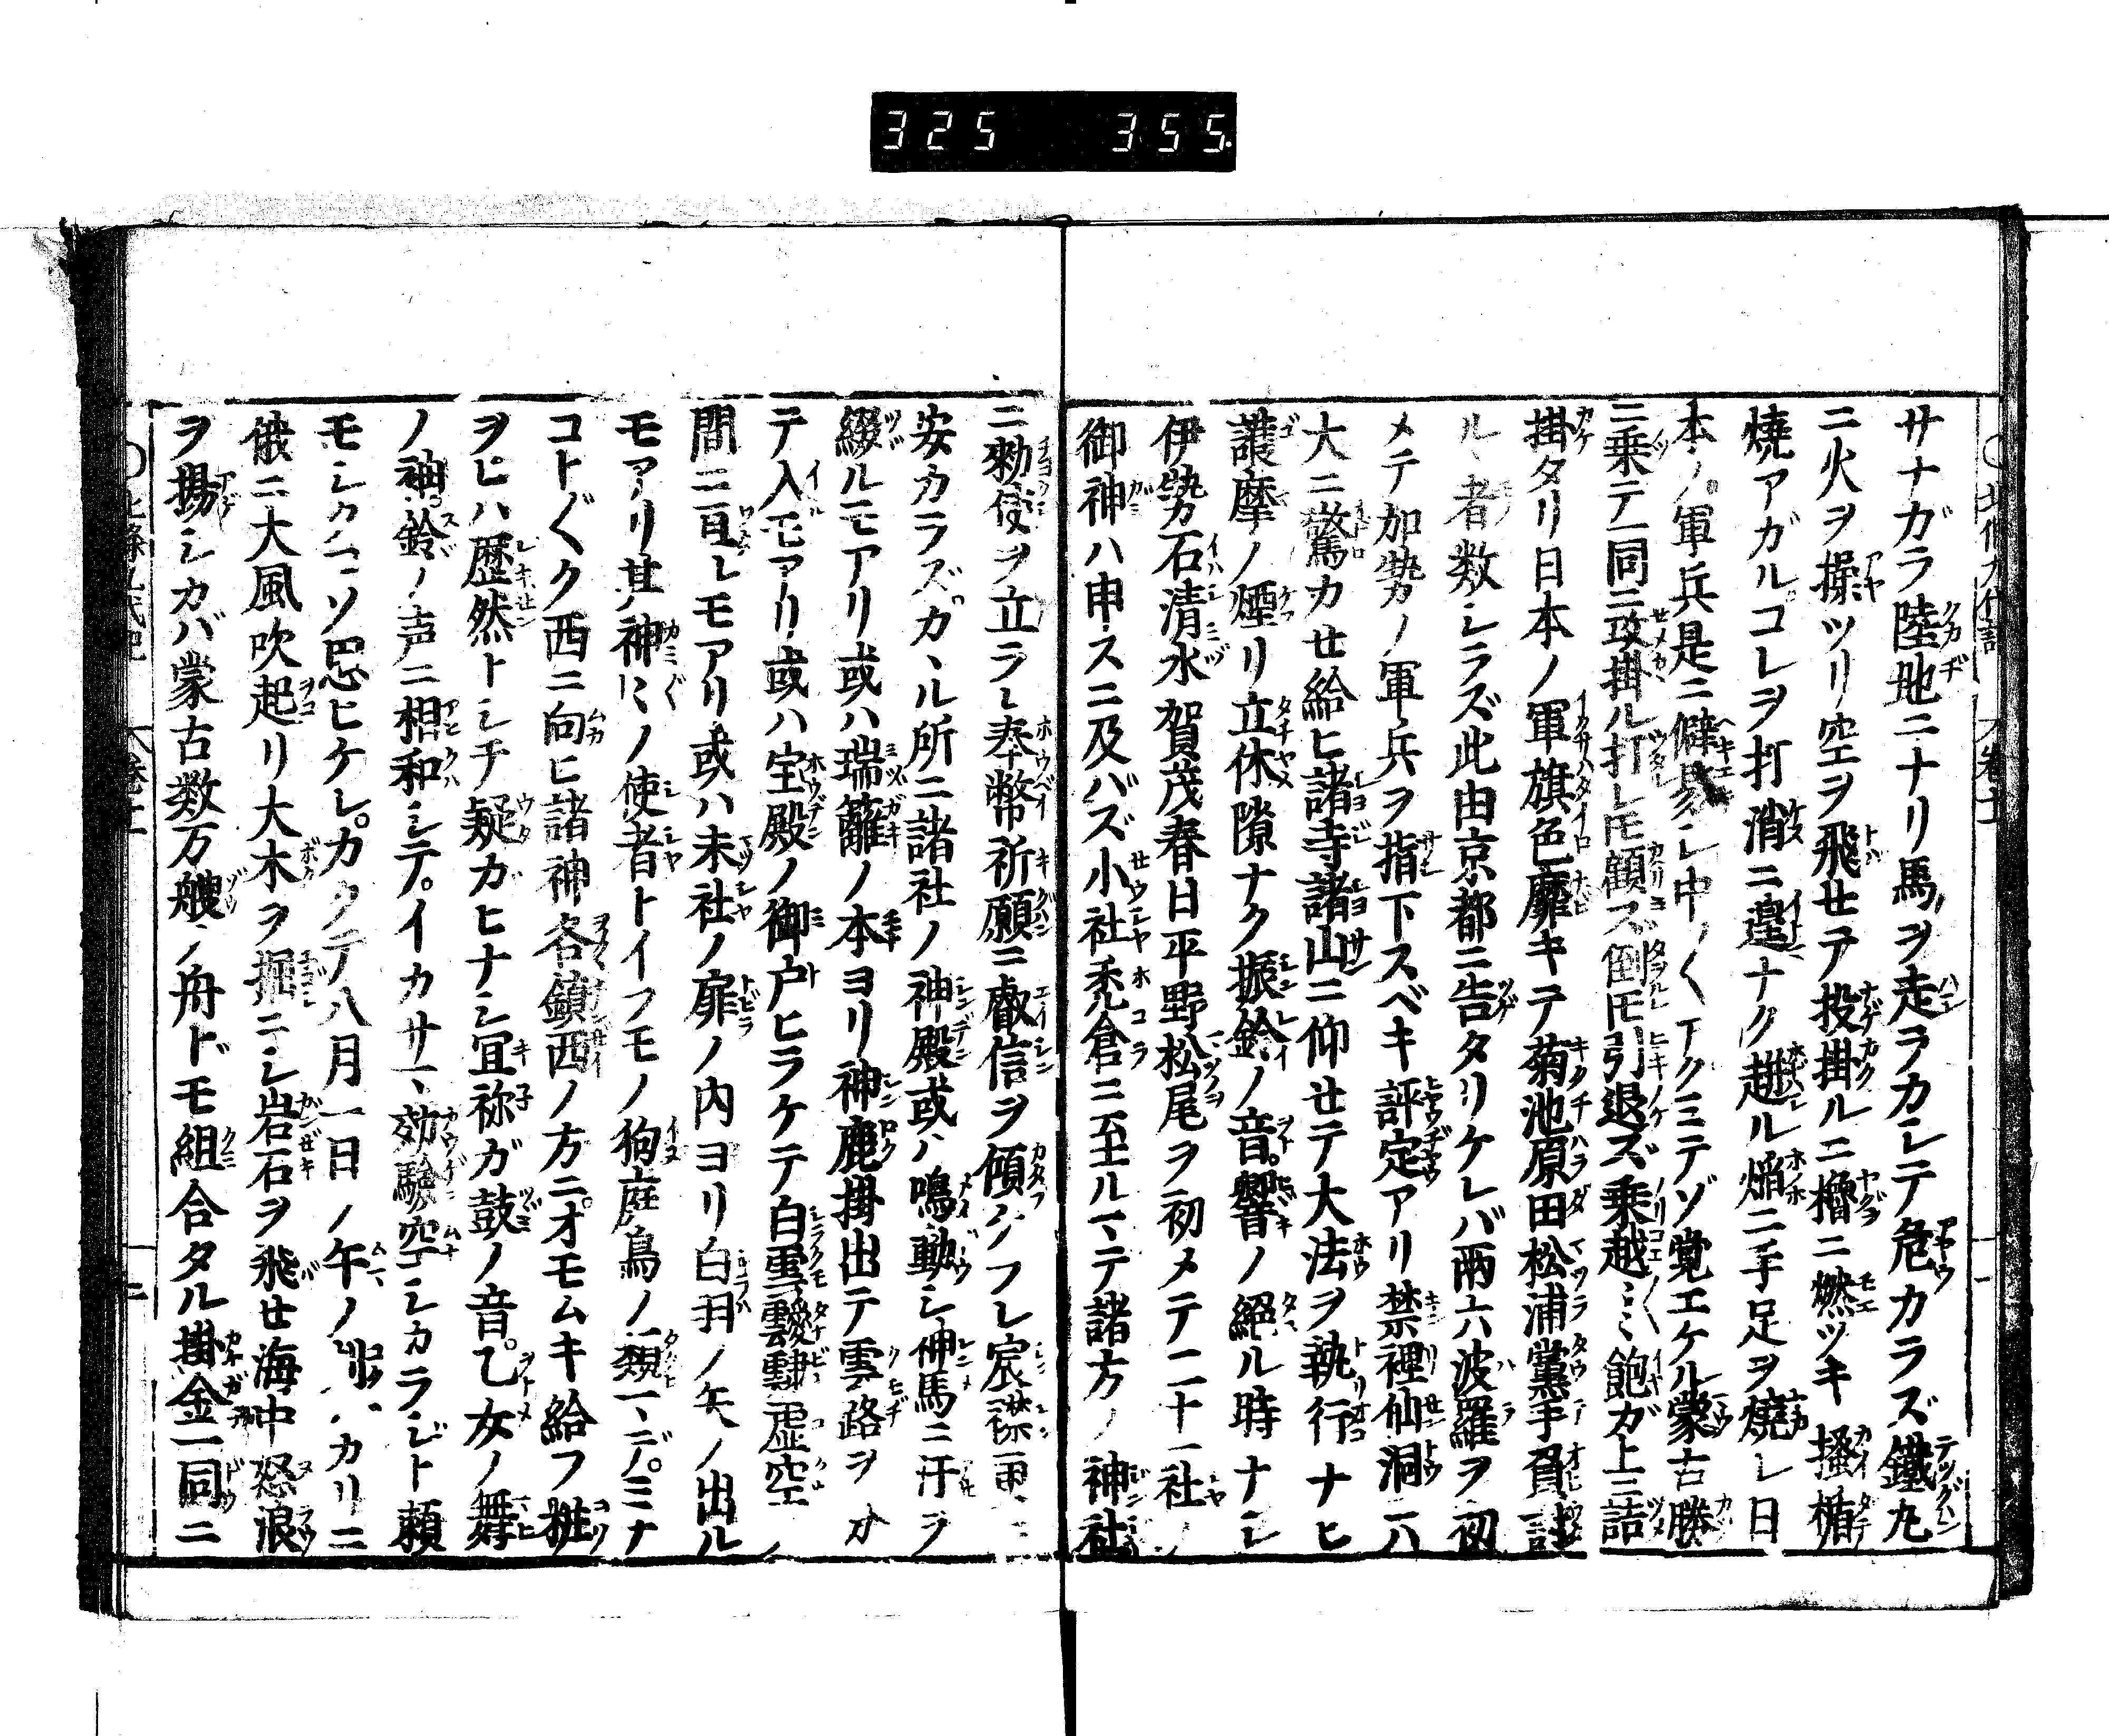 325 355
サナガラ陸地ニナリ馬ヲ走ラカシテ危カラズ鐵丸
ニ火ヲ操ツリ空ヲ飛セテ投掛ルニ櫓ニ燃ツキ搔楯
燒アガルコレヲ打消ニ遑ナク趐ル焔ニ手足ヲ燒レ日
本ノ軍兵是ニ僻易シ中〱アクミテゾ覚エケル蒙古勝
ニ乗テ一同ニ攻掛ル打レ𪜈顧ズ倒𪜈引退ズ乗越〱飽ガ上ニ詰
掛タリ日本ノ軍旗色靡キテ菊池原田松浦黨手負討
ルヽ者数シラズ此由京都ニ告タリケレバ兩六波羅ヲ初
メテ加勢ノ軍兵ヲ指下スベキ評定アリ禁裡仙洞ニハ
大ニ驚カせ給ヒ諸寺諸山ニ仰せテ大法ヲ執行ナヒ
護摩ノ煙リ立休隙ナク振鈴ノ音響ノ絕ル時ナシ
伊勢石清水賀茂春日平野松尾ヲ初メテ二十一社ノ
御神ハ申スニ及バズ小社禿倉ニ至ルマテ諸方ノ神社
ニ勅使ヲ立ラレ奉幣祈願ニ叡信ヲ傾ケフレ宸襟更ニ
安カラズカヽル所ニ諸社ノ神殿或ハ鳴動シ神馬ニ汗ヲ
綴ルモアリ或ハ瑞籬ノ本ヨリ神鹿掛出テ雲路ヲサ
テ入モアリ或ハ宝殿ノ御戸ヒラケテ白雲靉靆虚空ノ
間ニ亘レモアリ或ハ末社ノ扉ノ内ヨリ白羽ノ矢ノ出ル
モアリ其神〻ノ使者トイフモノ狗庭鳥ノ類マデミナ
コト〲ク西ニ向ヒ諸神各鎮西ノ方ニオモムキ給フ粧
ヲヒハ歴然トシテ疑カヒナシ宜祢ガ鼓ノ音乙女ノ舞
ノ袖鈴ノ声ニ相和シテイカサマ効驗空シカラジト頼
モシクコソ思ヒケレカクテ八月一日ノ午ノ カリニ
俄ニ大風吹起リ大木ヲ掘ニシ岩石ヲ飛せ海中怒浪
ヲ揚シカバ蒙古数万艘ノ舟ドモ組合タル掛金一同ニ